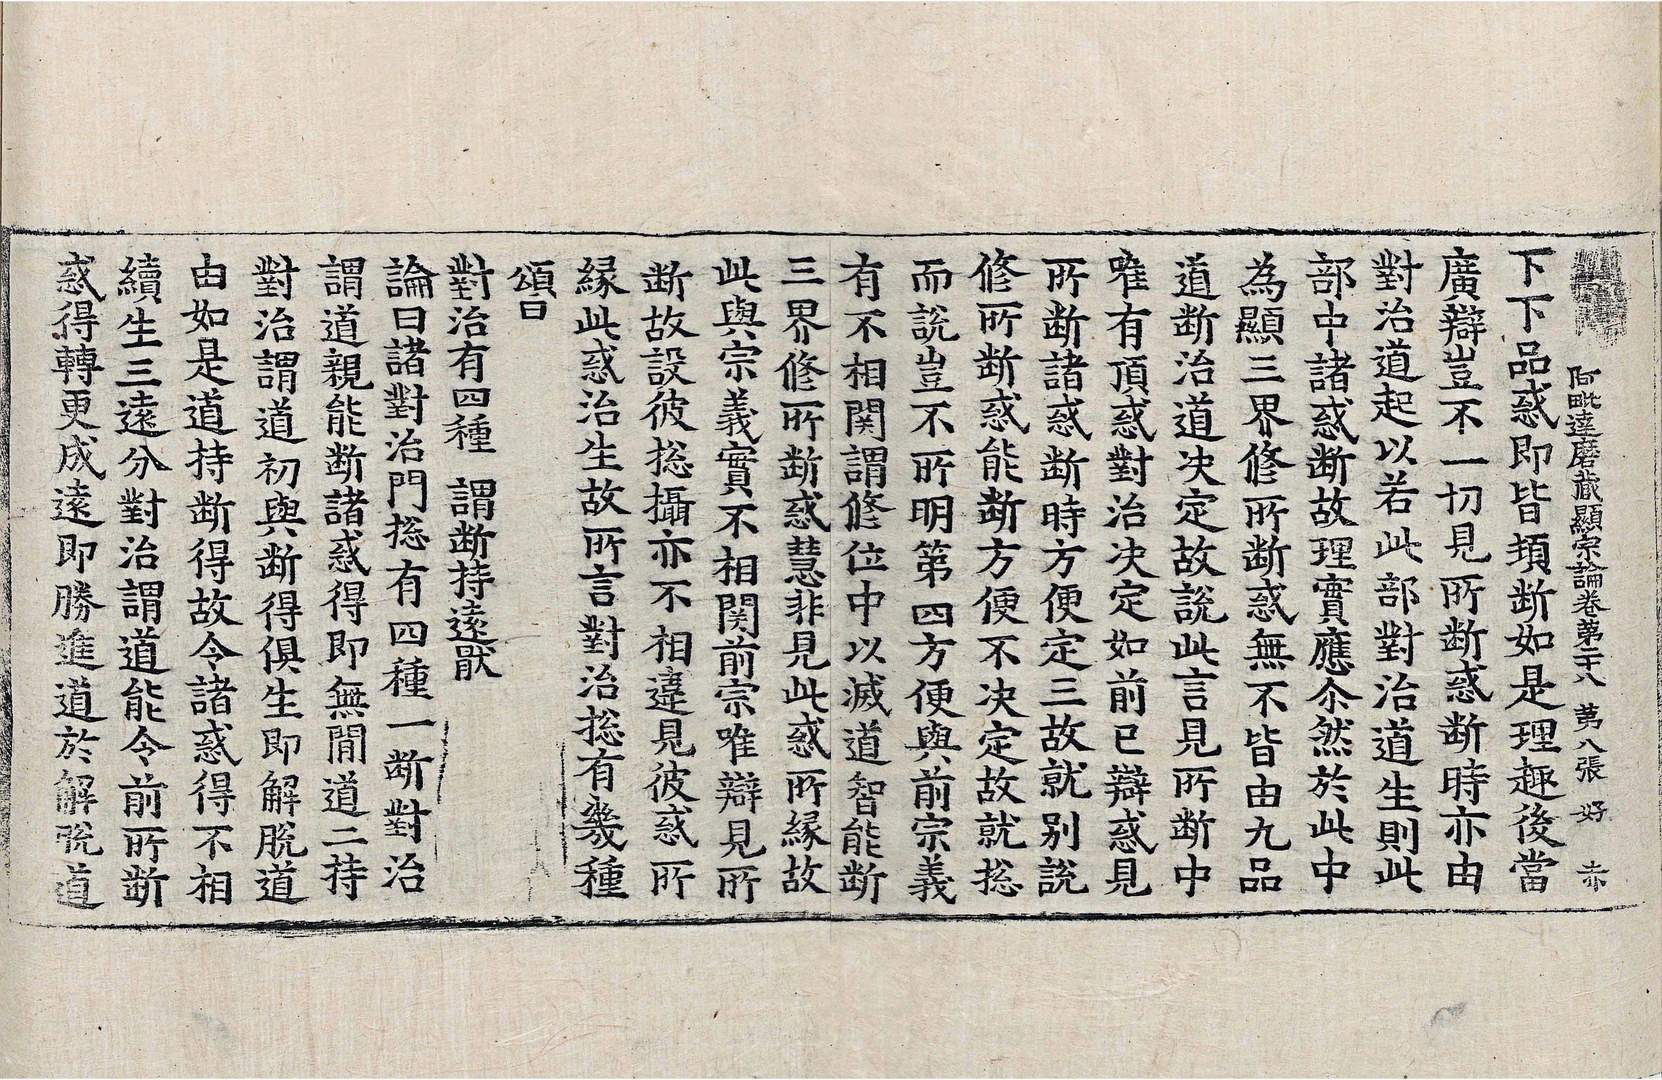 阿毗達磨藏顯宗論卷苐二十八 苐八張 好
下下品惑即皆頓断如是理趣後當
廣辯豈不一切見所断惑断時亦由
對治道起以若此部對治道生則此
部中諸惑断故理實應尒然於此中
為顯三界修所断惑無不皆由九品
道断治道决定故說此言見所断中
唯有頂惑對治决定如前已辯惑見
所断諸惑断時方便定三故就别說
修所断惑能断方便不决定故就捴
而說豈不所明第四方便與前宗義
有不相関謂修位中以滅道智能断
三界修所断惑慧非見此惑所縁故
此與宗義實不相関前宗唯辯見所
断故設彼捴攝亦不相違見彼惑所
縁此惑治生故所言對治捴有幾種
頌曰
對治有四種 謂断持遠猒
論曰諸對治門捴有四種一断對治
謂道親能断諸惑得即無閒道二持
對治謂道初與断得俱生即解脫道
由如是道持断得故令諸惑得不相
續生三遠分對治謂道能令前所断
惑得轉更成遠即勝進道於解脫道